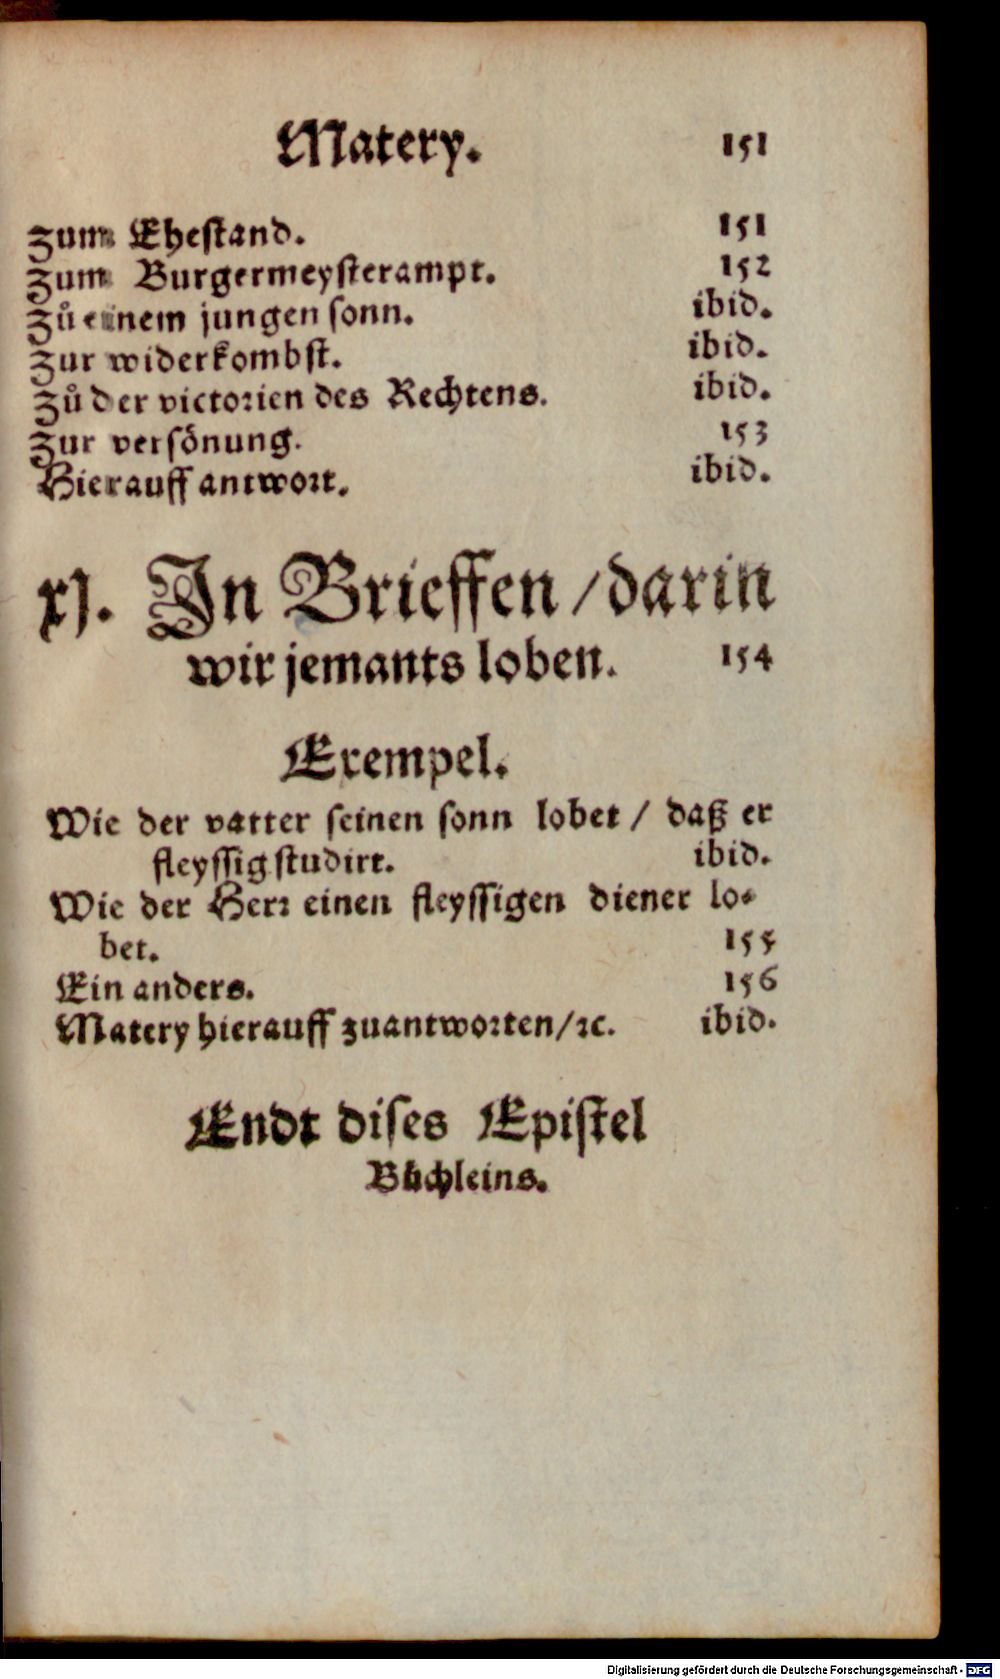 Matery. 151
Zum Ehestand. 151
Zum Burgermeysterampt. 152
Zů einem jungen sonn. ibid.
Zur widerkombst. ibid.
Zů der victorien des Rechtens. ibid.
Zur versönung. 153
Hierauff antwort. ibid.
xj. In Brieffen / darin
wir jemants loben. 154
Exempel.
Wie der vatter seinen sonn lobet / daß er
fleyssig studirt. ibid.
Wie der Herr einen fleyssigen diener lo-
bet. 155
Ein anders. 156
Matery hierauff zuantworten / ꝛc. ibid.
Endt dises Epistel
Büchleins.
Digitalisierung gefördert durch die Deutsche Forschungsgemeinschaft - DFG